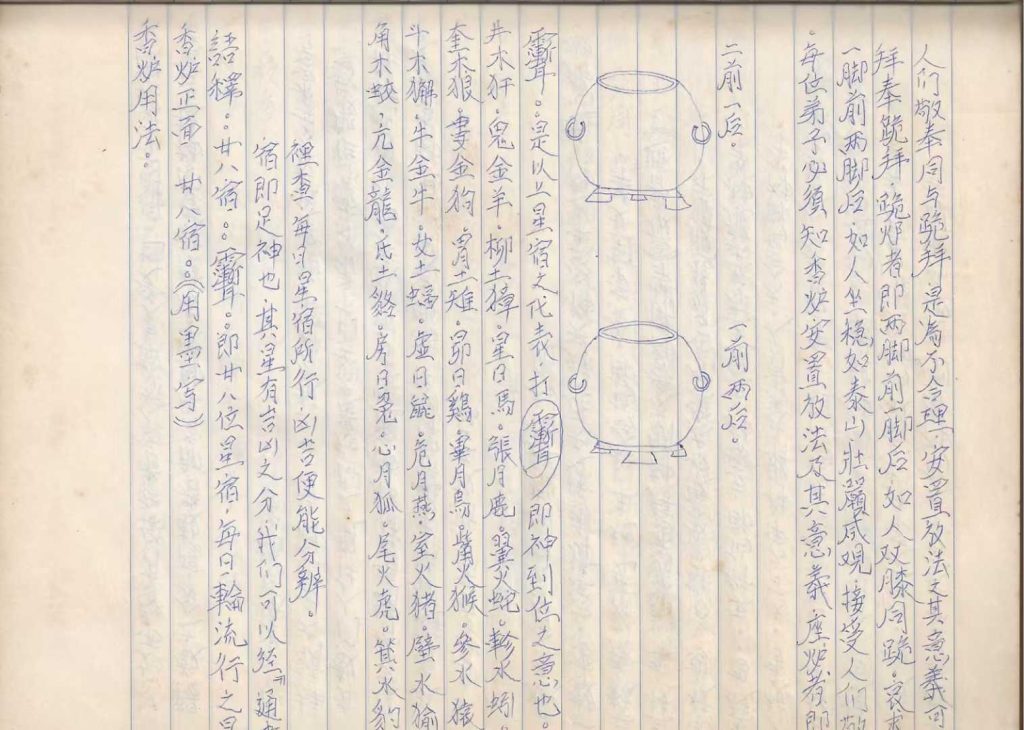 香炉用法。
香炉正面 廿八宿。(用墨写)
話釋。廿八宿。即廿八位星宿,每日輪流行之星
宿即是神也,其星有吉凶之分我们可以经通
裡查,每日星宿所行,凶吉便能分辨。
角木蛟,亢金龍,氐土貉。房日兔。心月狐。尾火虎。箕水豹
斗木獬。牛金牛。女土蝠。虚日鼠。危月燕。室火猪。壁水㺄
奎木狼。婁金狗。胃土雉。昴日鷄。畢月烏。觜火猴。参水猿
井木犴。鬼金羊。柳土獐。星日馬。張月鹿。翼火蛇。軫水蚓。
是以上星宿之代表,打 即神到位之意也。
二前一后。
一前两后。
每位弟子必须知香炉安置放法及其意義,座炉者,即
一脚前两脚后,如人坐稳如泰山壮麗威观,接受人们敬
拜奉跪拜,跪炉者即两脚前一脚后,如人双膝同跪,哀求
人们敬奉同与跪拜,是為不合理,安置放法之其意義可